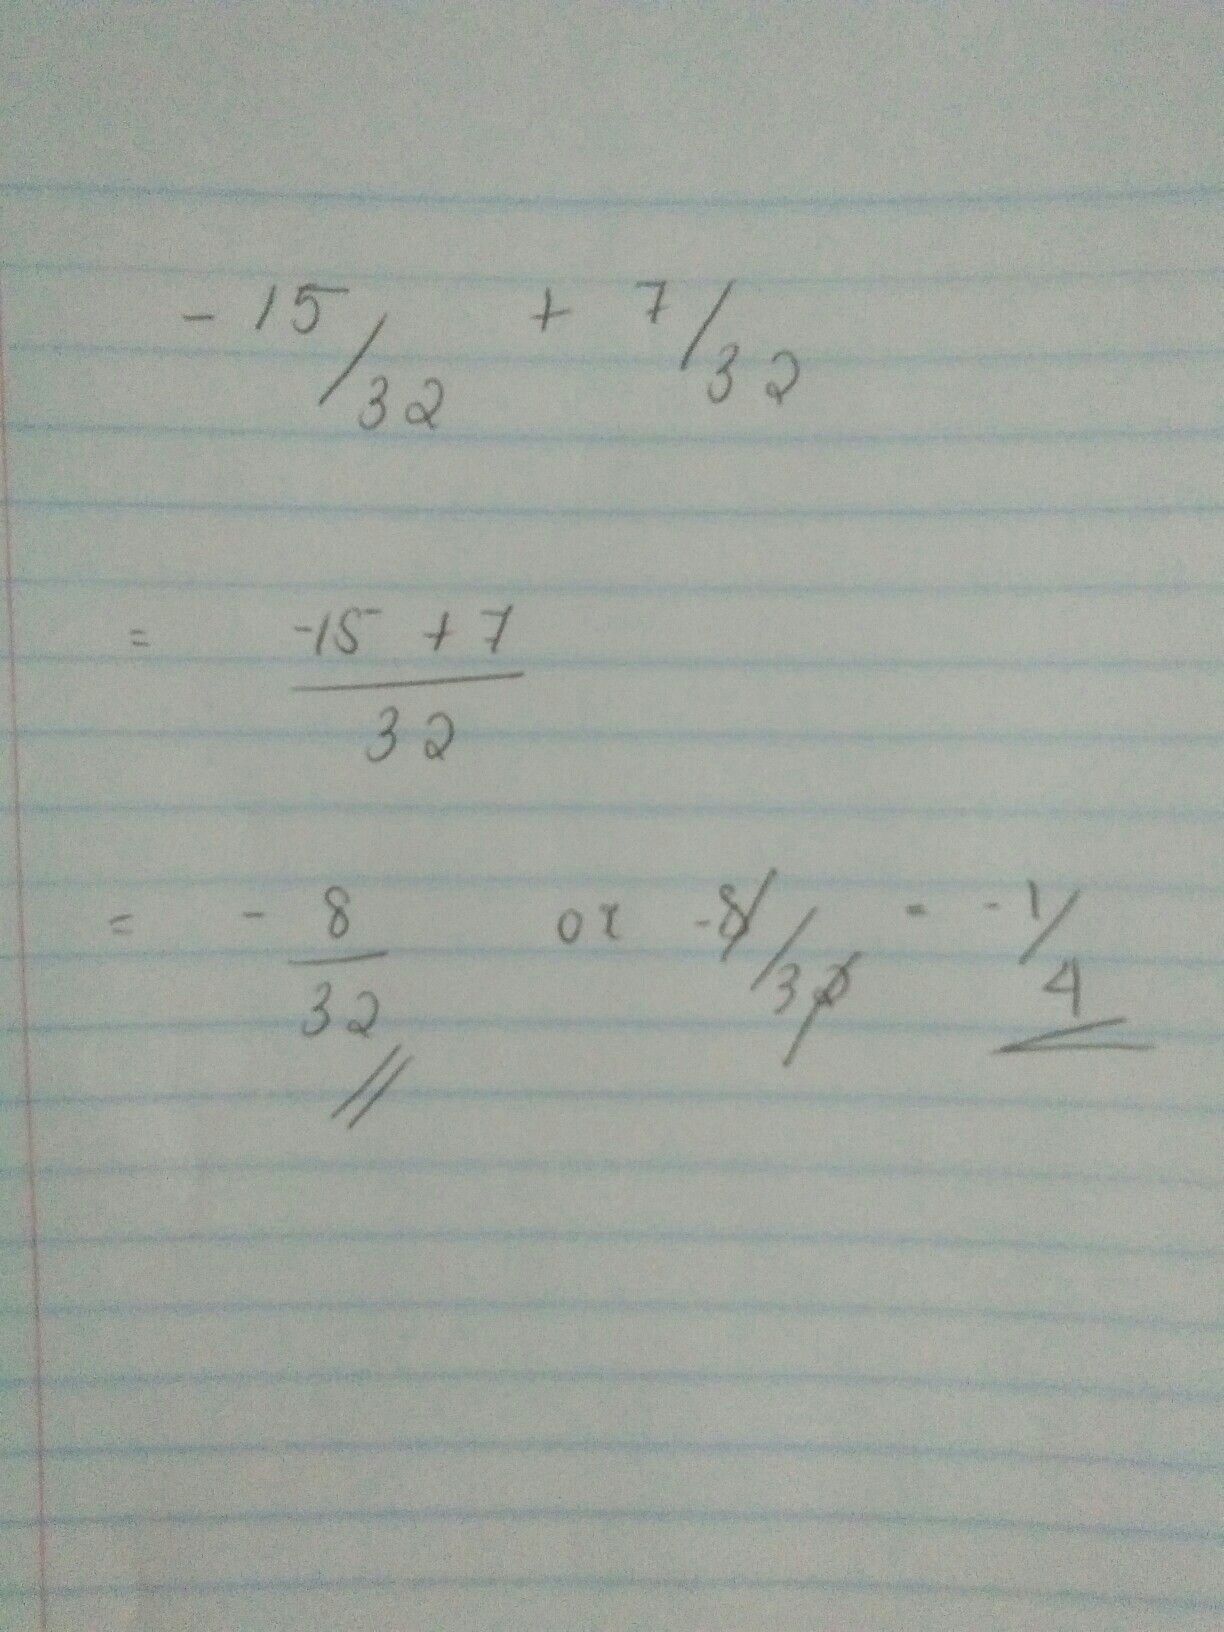 - 15/32 + 7/32
= -15 + 7
32
= - 8/32 or -8/32 = -1/4